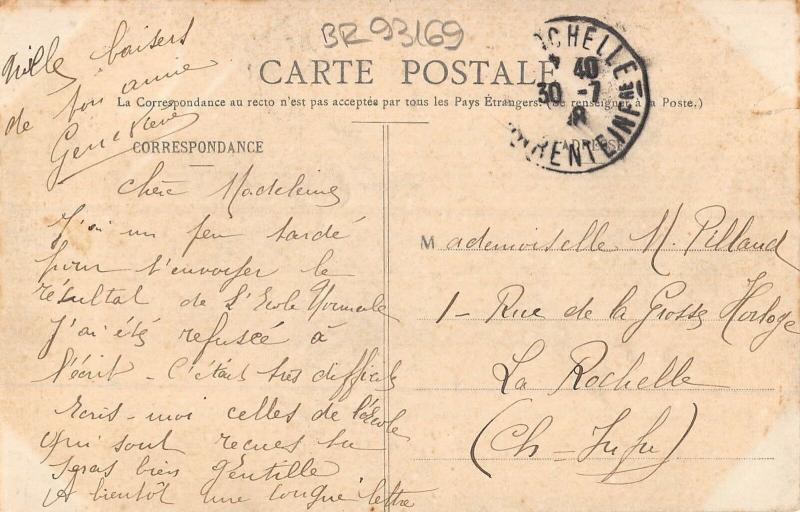 BR93169
CARTE POSTALE
La Correspondance au recto n'est pas acceptée par tous les Pays Étrangers. (Se renseigner à la Poste.)
CORRESPONDANCE
ADRESSE
ROCHELLE
40
30 -7
CHARENTE INFRE
Chère Madeleine
J'ai un peu tardé
pour t'envoyer le
résultat de l'Ecole Normale
J'ai été refusée à
l'écrit - C'était très difficile
Ecris-moi celles de l'Ecole
qui sont recues tu
seras bien gentille
A bientôt une longue lettre
Mille baisers
de ton amie
Geneviève
Mademoiselle M. Pillaud
1 - Rue de la Grosse Horloge
La Rochelle
(Ch - Infre)